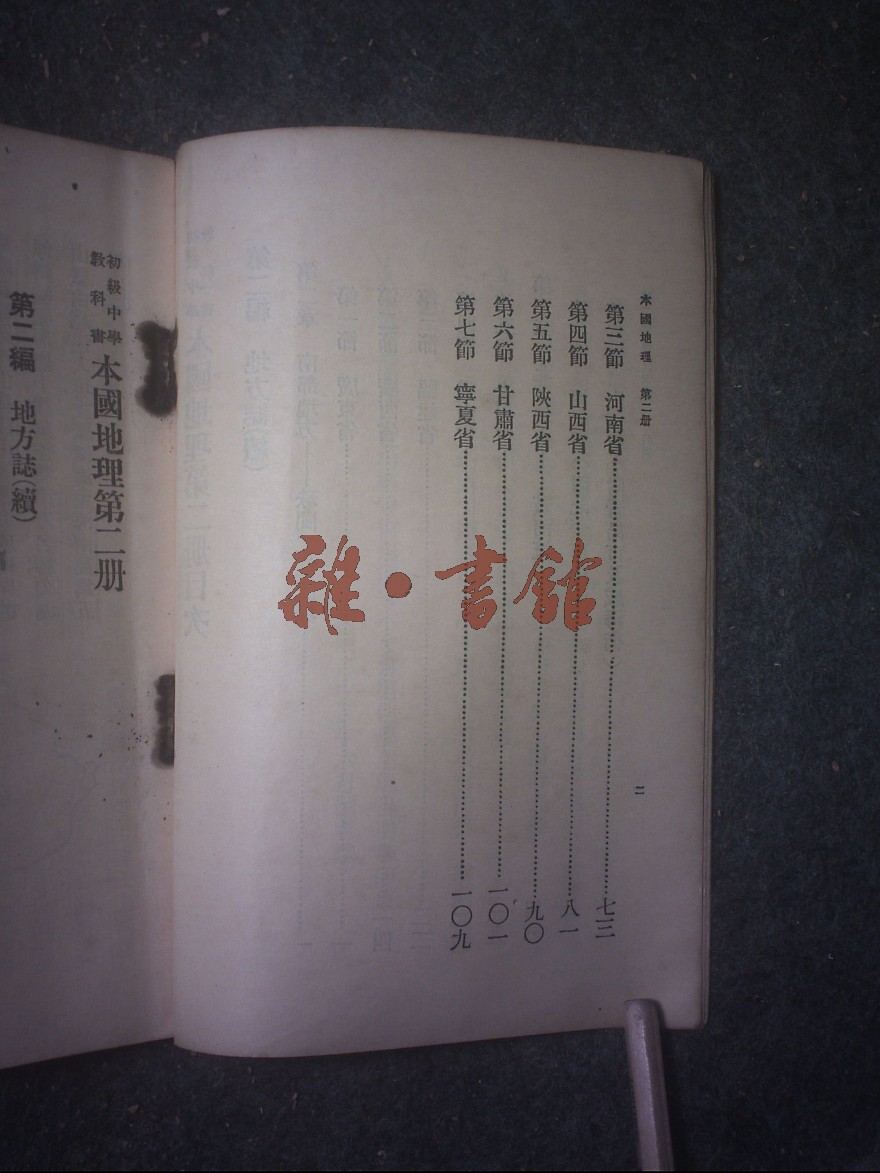 本國地理 第二册
第三節 河南省 七三
第四節 山西省 八一
第五節 陝西省 九〇
第六節 甘肅省 一〇一
第七節 寧夏省 一〇九
二
初級中學
教科書
本國地理第二册
第二編 地方誌(續)
雜·書館